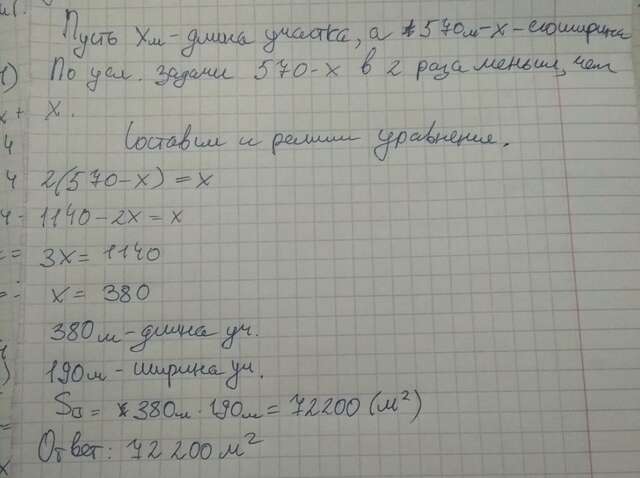 Пусть Xм - длина участка, а 570м-x - его ширина
По усл. задачи 570-x в 2 раза меньше, чем
x.
Составим и решим уравнение.
2(570-x)=x
1140-2x=x
3x=1140
x=380
380м-длина уч.
190м-ширина уч.
S□=380м·190м=72200(м²)
Ответ: 72200м²